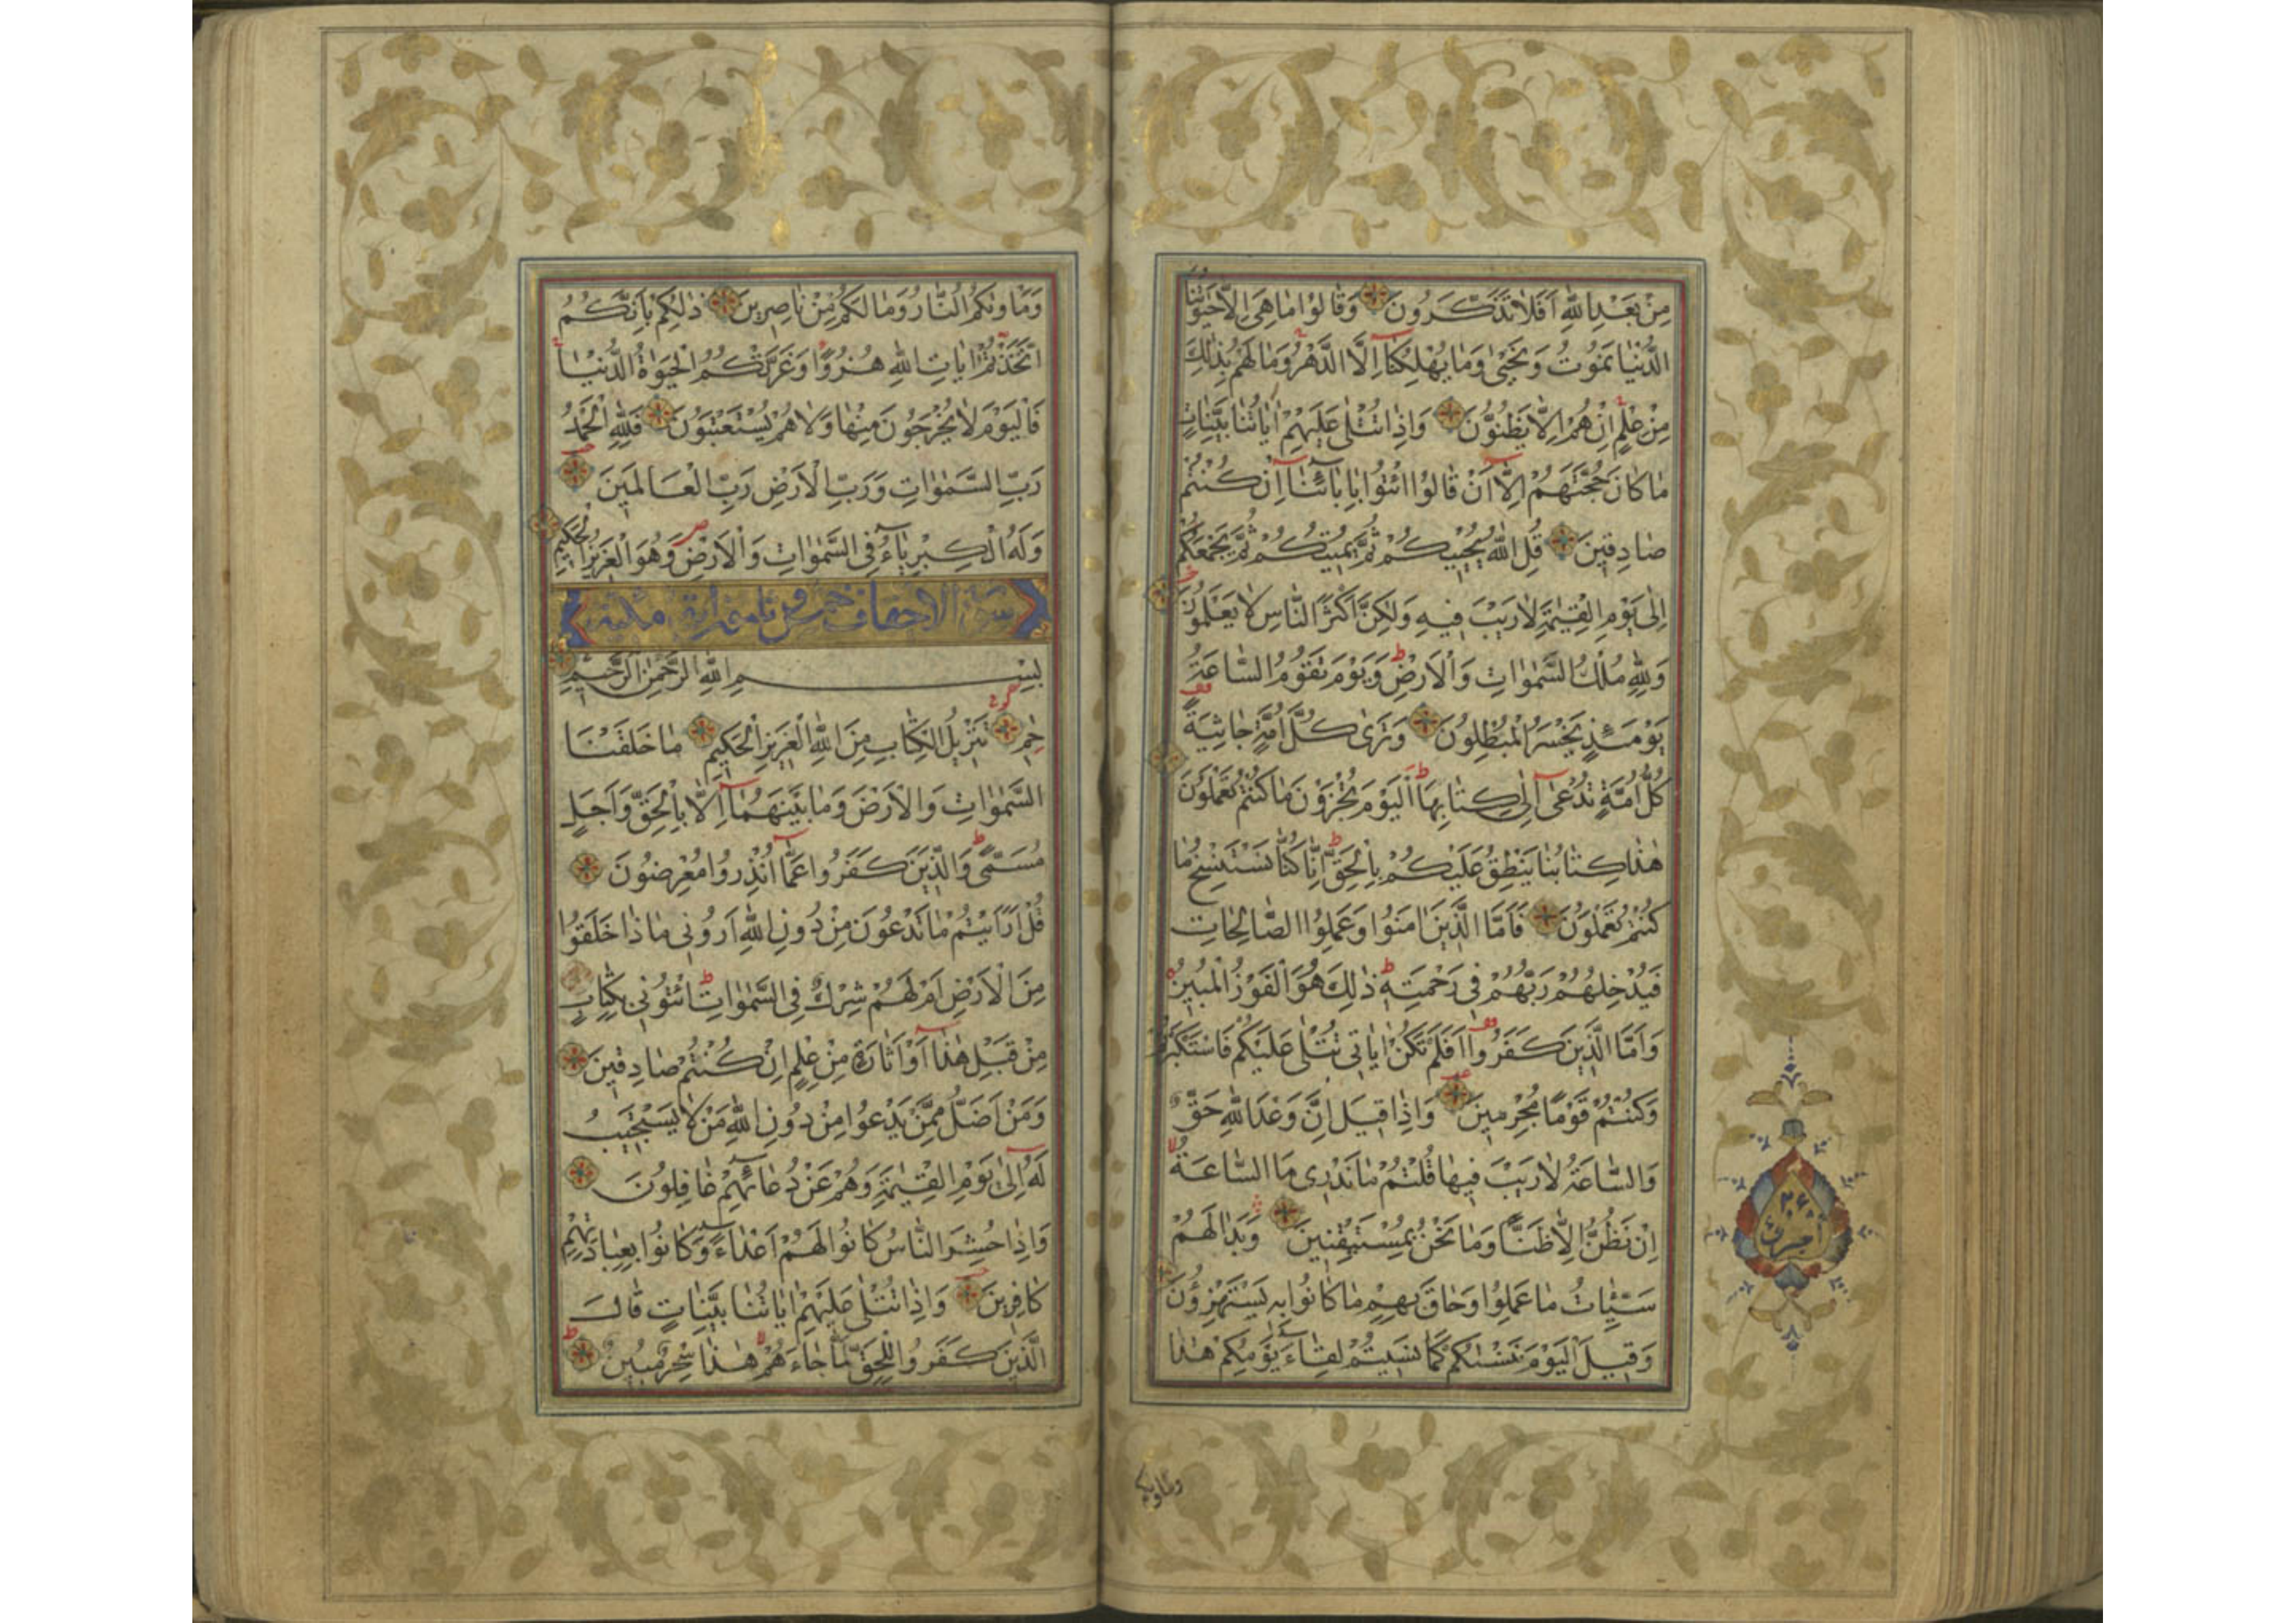 مِنْ بَعْدِ اللّٰهِ اَفَلَا تَذَكَّرُونَ وَقَالُوا مَا هِىَ اِلَّا حَيٰوتُنَا
الدُّنْيَا نَمُوتُ وَنَحْيٰى وَمَا يُهْلِكُنَا اِلَّا الدَّهْرُ وَمَا لَهُمْ بِذٰلِكَ
مِنْ عِلْمٍ اِنْ هُمْ اِلَّا يَظُنُّونَ وَاِذَا تُتْلٰى عَلَيْهِمْ اٰيَاتُنَا بَيِّنَاتٍ
مَا كَانَ حُجَّتَهُمْ اِلَّا اَنْ قَالُوا ائْتُوا بِاٰبَائِنَا اِنْ كُنْتُمْ
صَادِقِينَ قُلِ اللّٰهُ يُحْيِيكُمْ ثُمَّ يُمِيتُكُمْ ثُمَّ يَجْمَعُكُمْ
اِلٰى يَوْمِ الْقِيٰمَةِ لَا رَيْبَ فِيهِ وَلٰكِنَّ اَكْثَرَ النَّاسِ لَا يَعْلَمُونَ
وَلِلّٰهِ مُلْكُ السَّمٰوَاتِ وَالْاَرْضِ وَيَوْمَ تَقُومُ السَّاعَةُ
يَوْمَئِذٍ يَخْسَرُ الْمُبْطِلُونَ وَتَرٰى كُلَّ اُمَّةٍ جَاثِيَةً
كُلُّ اُمَّةٍ تُدْعٰى اِلٰى كِتَابِهَا اَلْيَوْمَ تُجْزَوْنَ مَا كُنْتُمْ تَعْمَلُونَ
هٰذَا كِتَابُنَا يَنْطِقُ عَلَيْكُمْ بِالْحَقِّ اِنَّا كُنَّا نَسْتَنْسِخُ مَا
كُنْتُمْ تَعْمَلُونَ فَاَمَّا الَّذِينَ اٰمَنُوا وَعَمِلُوا الصَّالِحَاتِ
فَيُدْخِلُهُمْ رَبُّهُمْ فِى رَحْمَتِهِ ذٰلِكَ هُوَ الْفَوْزُ الْمُبِينُ
وَاَمَّا الَّذِينَ كَفَرُوا اَفَلَمْ تَكُنْ اٰيَاتِى تُتْلٰى عَلَيْكُمْ فَاسْتَكْبَرْتُمْ
وَكُنْتُمْ قَوْمًا مُجْرِمِينَ وَاِذَا قِيلَ اِنَّ وَعْدَ اللّٰهِ حَقٌّ
وَالسَّاعَةُ لَا رَيْبَ فِيهَا قُلْتُمْ مَا نَدْرِى مَا السَّاعَةُ
اِنْ نَظُنُّ اِلَّا ظَنًّا وَمَا نَحْنُ بِمُسْتَيْقِنِينَ وَبَدَا لَهُمْ
سَيِّئَاتُ مَا عَمِلُوا وَحَاقَ بِهِمْ مَا كَانُوا بِهِ يَسْتَهْزِؤُنَ
وَقِيلَ الْيَوْمَ نَنْسٰيكُمْ كَمَا نَسِيتُمْ لِقَاءَ يَوْمِكُمْ هٰذَا
وماويكم
وَمَأْوٰيكُمُ النَّارُ وَمَا لَكُمْ مِنْ نَاصِرِينَ ذٰلِكُمْ بِاَنَّكُمُ
اتَّخَذْتُمْ اٰيَاتِ اللّٰهِ هُزُوًا وَغَرَّتْكُمُ الْحَيٰوةُ الدُّنْيَا
فَالْيَوْمَ لَا يُخْرَجُونَ مِنْهَا وَلَا هُمْ يُسْتَعْتَبُونَ فَلِلّٰهِ الْحَمْدُ
رَبِّ السَّمٰوَاتِ وَرَبِّ الْاَرْضِ رَبِّ الْعَالَمِينَ
وَلَهُ الْكِبْرِيَاءُ فِى السَّمٰوَاتِ وَالْاَرْضِ وَهُوَ الْعَزِيزُ الْحَكِيمُ
سورة الاحقاف خمس و ثلثون اية مكية
بِسْمِ اللّٰهِ الرَّحْمٰنِ الرَّحِيمِ
حٰم تَنْزِيلُ الْكِتَابِ مِنَ اللّٰهِ الْعَزِيزِ الْحَكِيمِ مَا خَلَقْنَا
السَّمٰوَاتِ وَالْاَرْضَ وَمَا بَيْنَهُمَا اِلَّا بِالْحَقِّ وَاَجَلٍ
مُسَمًّى وَالَّذِينَ كَفَرُوا عَمَّا اُنْذِرُوا مُعْرِضُونَ
قُلْ اَرَاَيْتُمْ مَا تَدْعُونَ مِنْ دُونِ اللّٰهِ اَرُونِى مَاذَا خَلَقُوا
مِنَ الْاَرْضِ اَمْ لَهُمْ شِرْكٌ فِى السَّمٰوَاتِ ائْتُونِى بِكِتَابٍ
مِنْ قَبْلِ هٰذَا اَوْ اَثَارَةٍ مِنْ عِلْمٍ اِنْ كُنْتُمْ صَادِقِينَ
وَمَنْ اَضَلُّ مِمَّنْ يَدْعُوا مِنْ دُونِ اللّٰهِ مَنْ لَا يَسْتَجِيبُ
لَهُ اِلٰى يَوْمِ الْقِيٰمَةِ وَهُمْ عَنْ دُعَائِهِمْ غَافِلُونَ
وَاِذَا حُشِرَ النَّاسُ كَانُوا لَهُمْ اَعْدَاءً وَكَانُوا بِعِبَادَتِهِمْ
كَافِرِينَ وَاِذَا تُتْلٰى عَلَيْهِمْ اٰيَاتُنَا بَيِّنَاتٍ قَالَ
الَّذِينَ كَفَرُوا لِلْحَقِّ لَمَّا جَاءَهُمْ هٰذَا سِحْرٌ مُبِينٌ